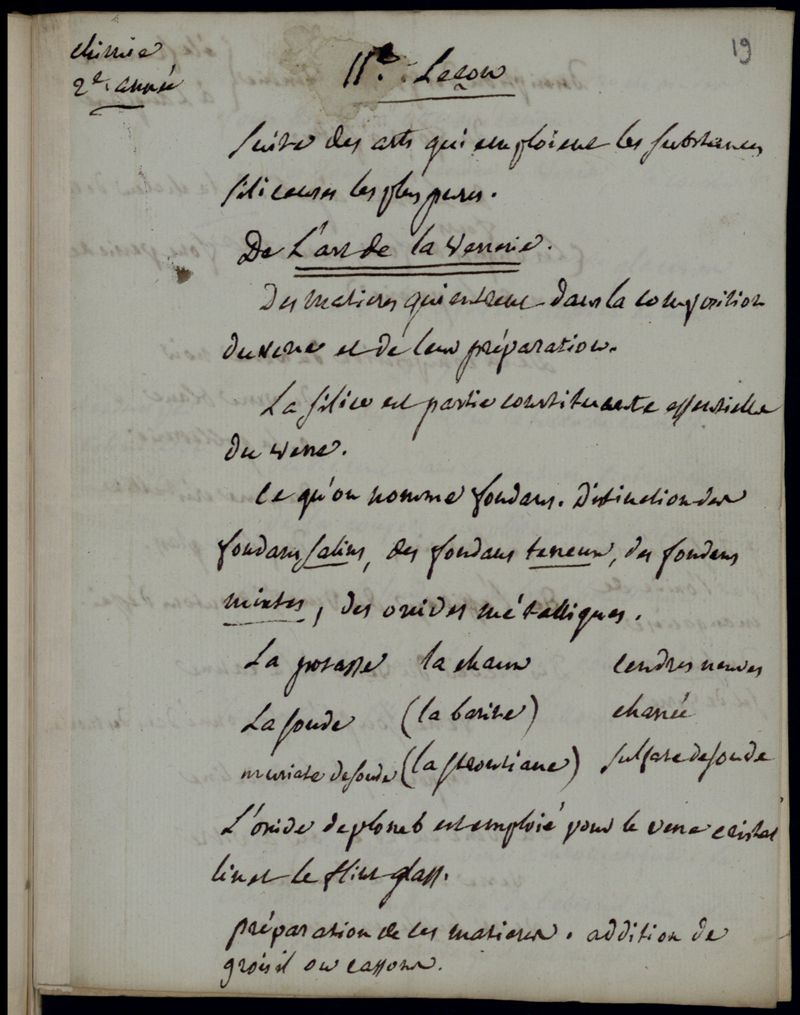 chimie
2e. année
19
11e. Leçon
Suite des arts qui emploient les substances
siliceuses les plus pures.
De L'art de la verrerie.
Des matieres qui entrent dans la composition
du verre et de leur préparation.
La silice est partie constituante essentielle
du verre.
Ce qu'on nomme fondans. Distinction des
fondans salins, des fondans terreux, des fondans
mixtes, des oxides métalliques.
La potasse la chaux cendres neuves
La soude (la barite) charrée
muriate de soude (la strontiane) sulfate de soude
L'oxide de plomb est emploié pour le verre cristal
lin et le flint glass.
préparation de ces matieres. addition de
groisil ou casson.